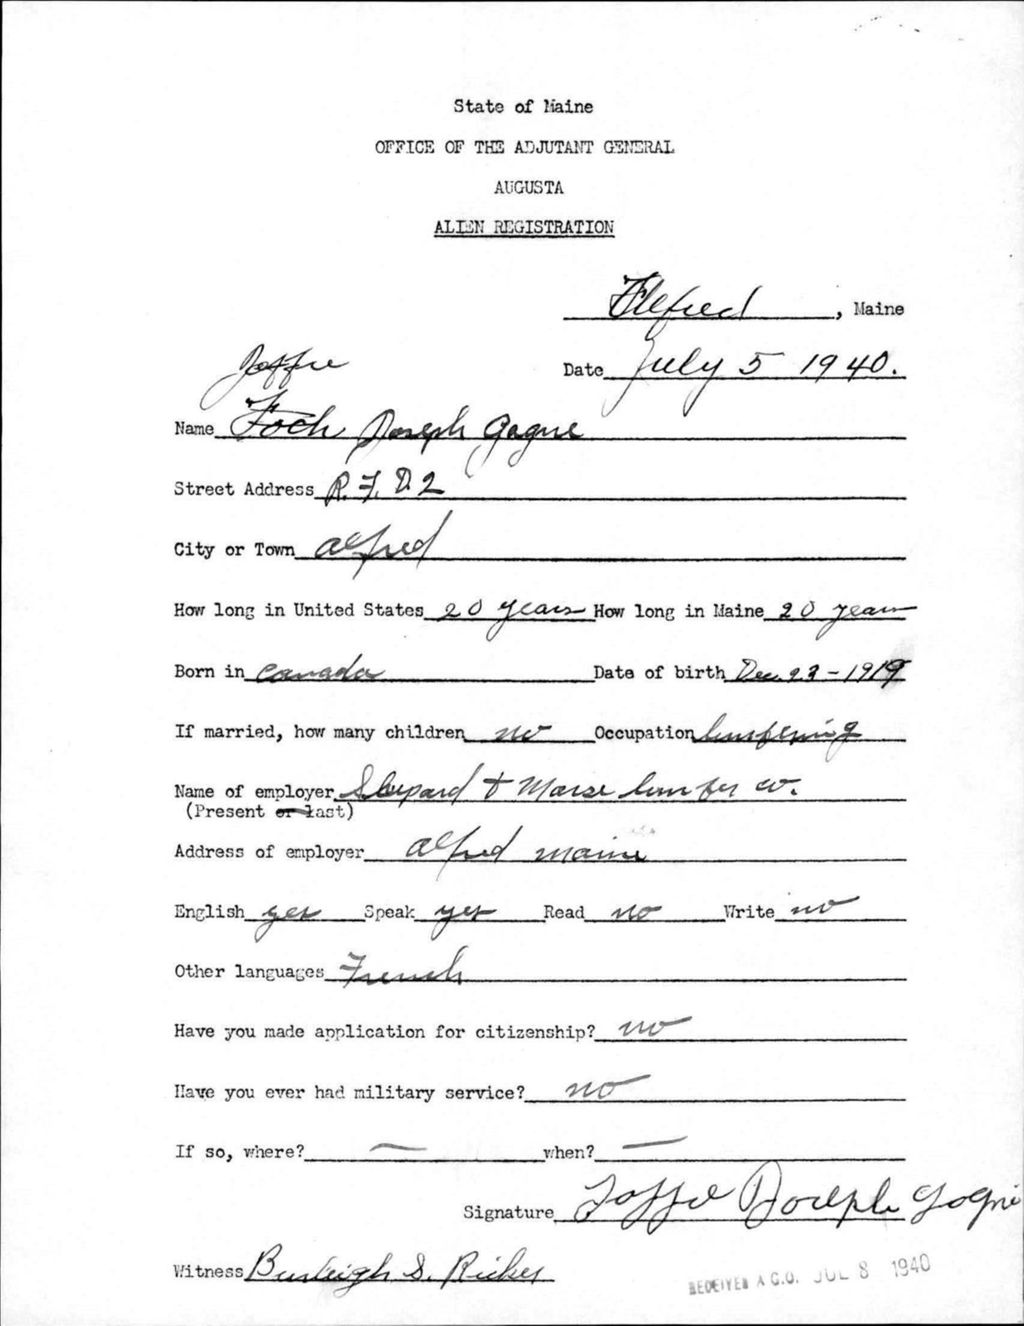 State of Maine
OFFICE OF THE ADJUTANT GENERAL
AUGUSTA
ALIEN REGISTRATION
Alfred, Maine
Date July 5 1940.
Joffre
Name Foch Joseph Gagne
Street Address R. F. D. 2
City or Town Alfred
How long in United States 20 years How long in Maine 20 years
Born in Canada Date of birth Dec. 23 - 1919
If married, how many children no Occupation lumbering
Name of employer Shepard & Morse lumber co.
(Present or last)
Address of employer Alfred maine
English yes Speak yes Read no Write no
Other languages French
Have you made application for citizenship? no
Have you ever had military service? no
If so, where? — when? —
Signature Joffre Joseph Gagne
Witness Burleigh S. Ricker
RECEIVED A.G.O. JUL 8 1940